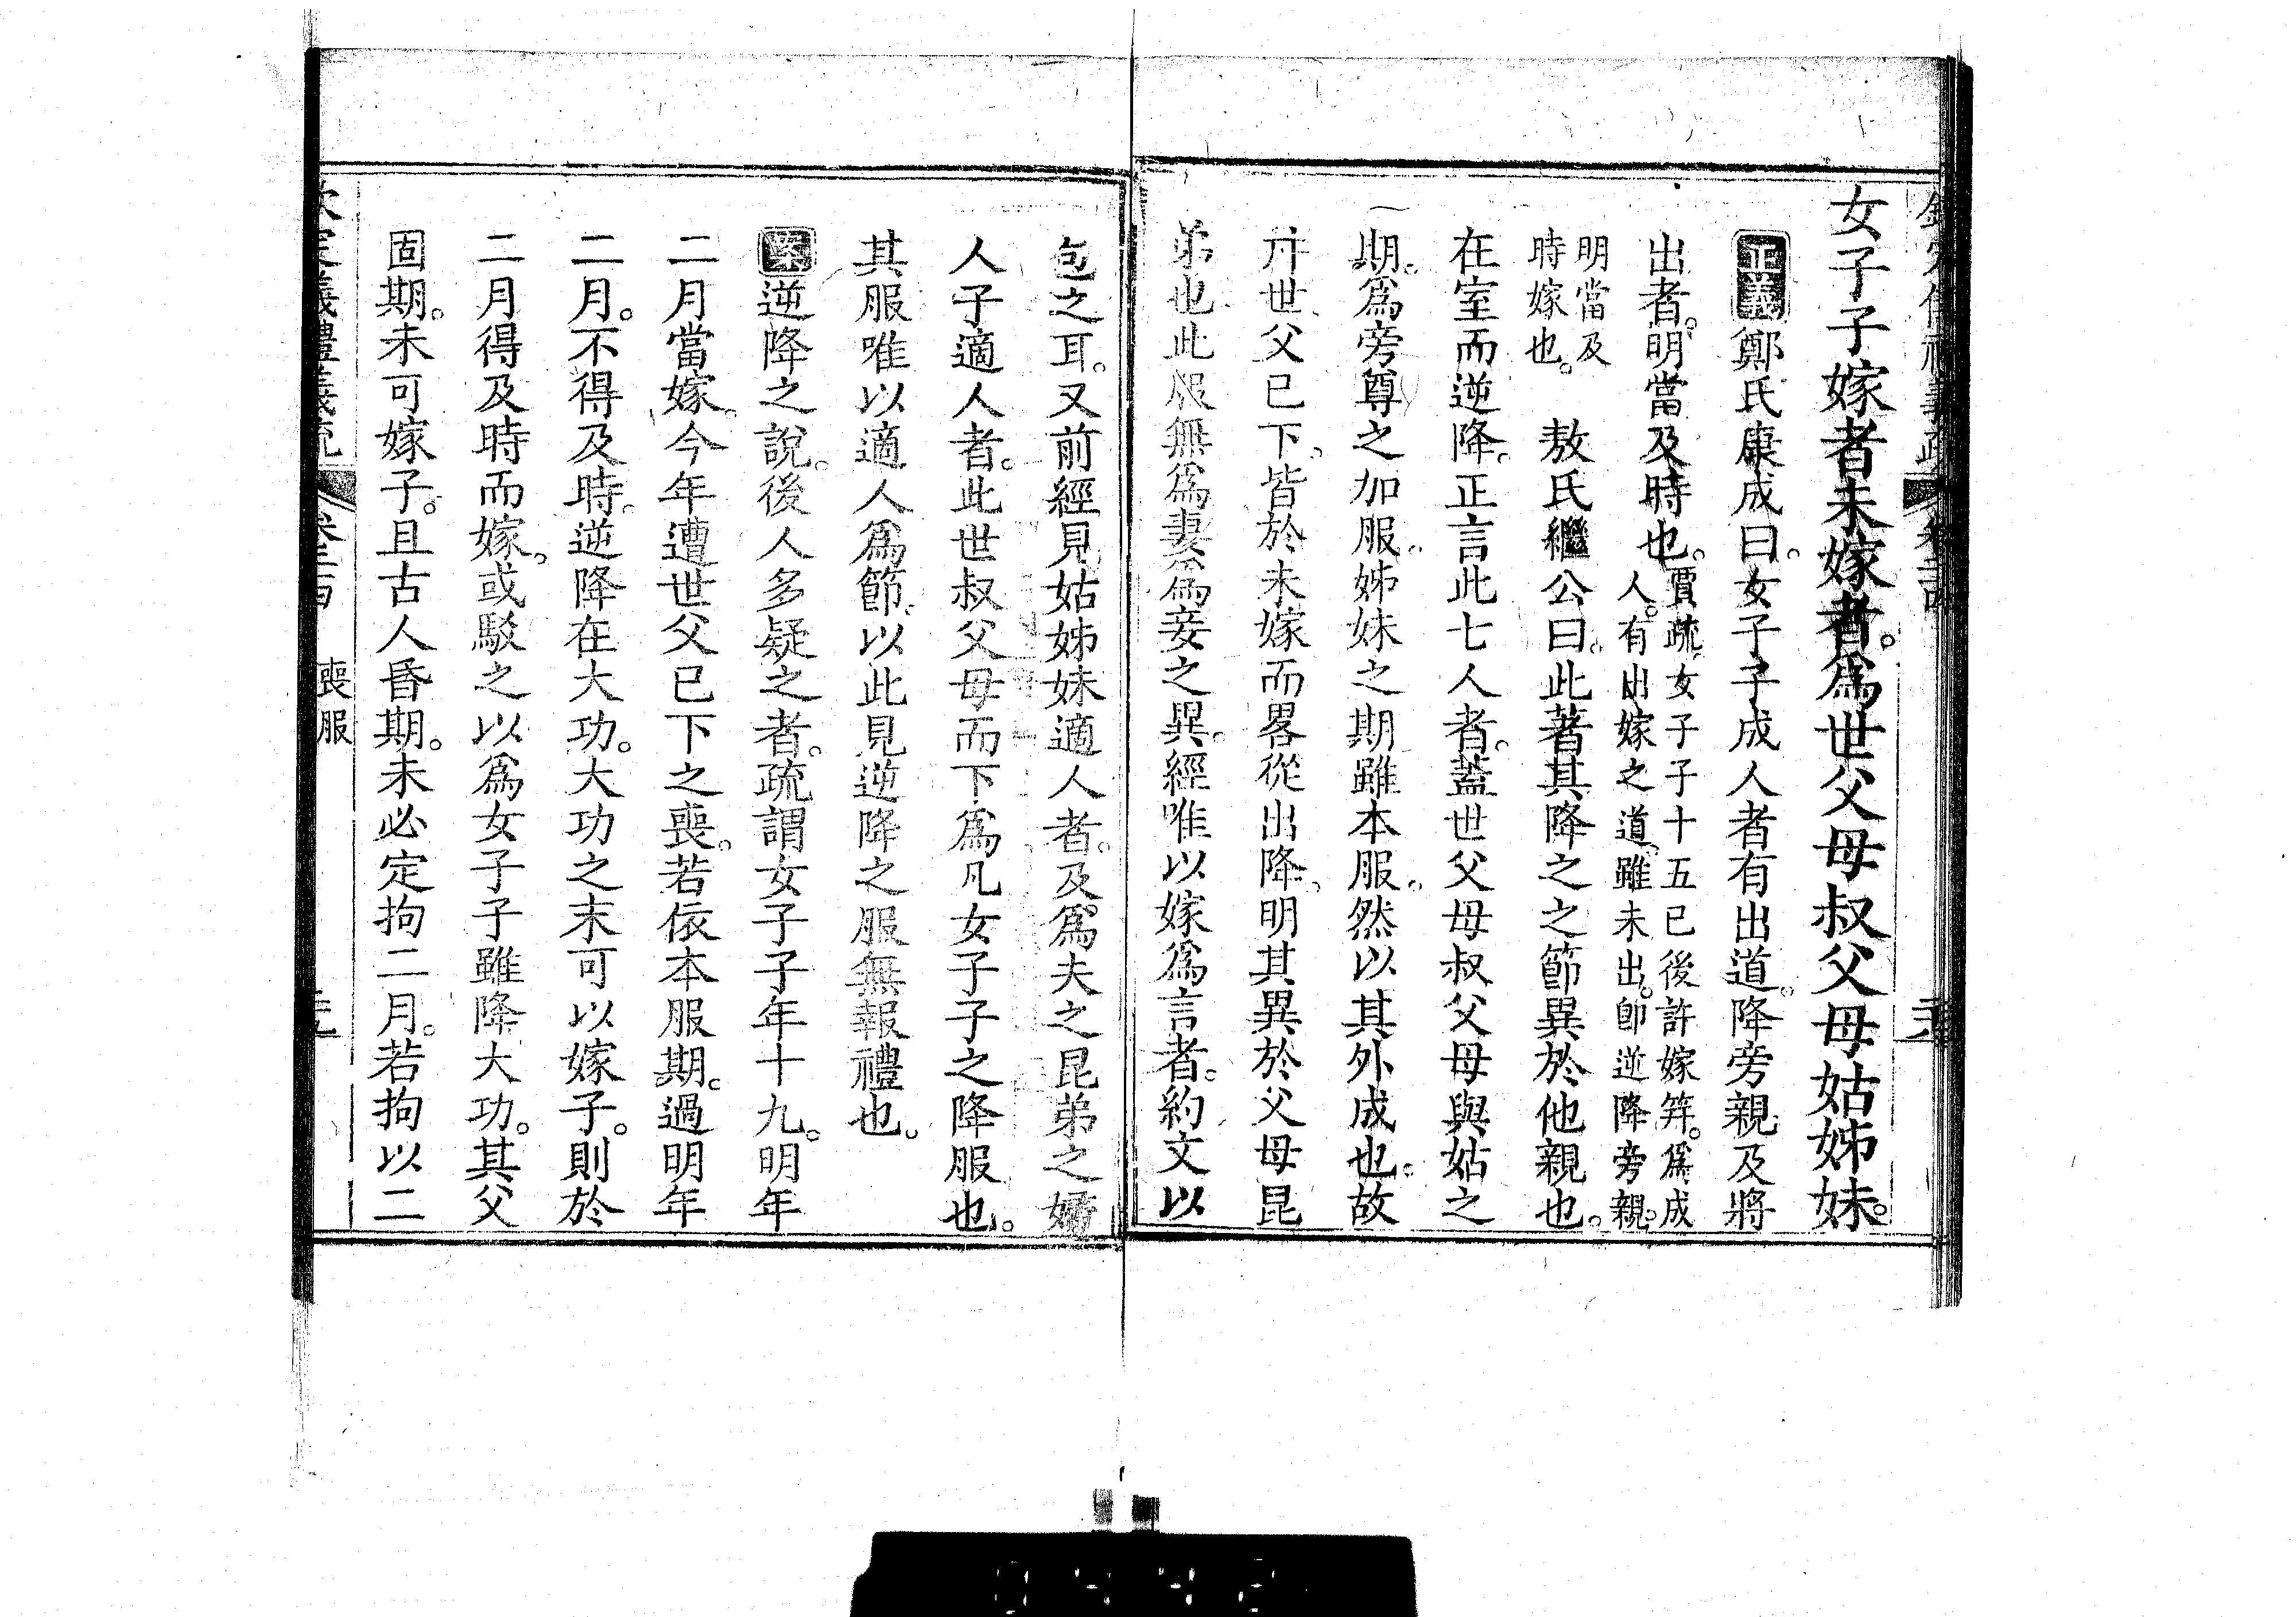 女子子嫁者未嫁者。爲世父母叔父母姑姊妹。
正義鄭氏康成曰。女子子成人者有出道。降旁親及將
出者。明當及時也。賈疏。女子子十五已後許嫁笄。爲成
人。有出嫁之道。雖未出。卽逆降旁親。
明當及
時嫁也。 敖氏繼公曰。此著其降之之節異於他親也。
在室而逆降。正言此七人者。蓋世父母叔父母與姑之
期。爲旁尊之加服。姊妹之期雖本服。然以其外成也。故
幷世父已下。皆於未嫁而畧從出降。明其異於父母昆
弟也此服無爲妻爲妾之異。經唯以嫁爲言者。約文以
包之耳。又前經見姑姊妹適人者。及爲夫之昆弟之婦
人子適人者。此世叔父母而下爲凡女子子之降服也。
其服唯以適人爲節。以此見逆降之服無報禮也。
案逆降之說。後人多疑之者。疏謂女子子年十九。明年
二月當嫁。今年遭世父已下之喪。若依本服期。過明年
二月。不得及時。逆降在大功。大功之末可以嫁子。則於
二月得及時而嫁。或駁之以爲女子子雖降大功。其父
固期。未可嫁子。且古人昏期。未必定拘二月。若拘以二
欽定義禮義疏 卷二百 喪服